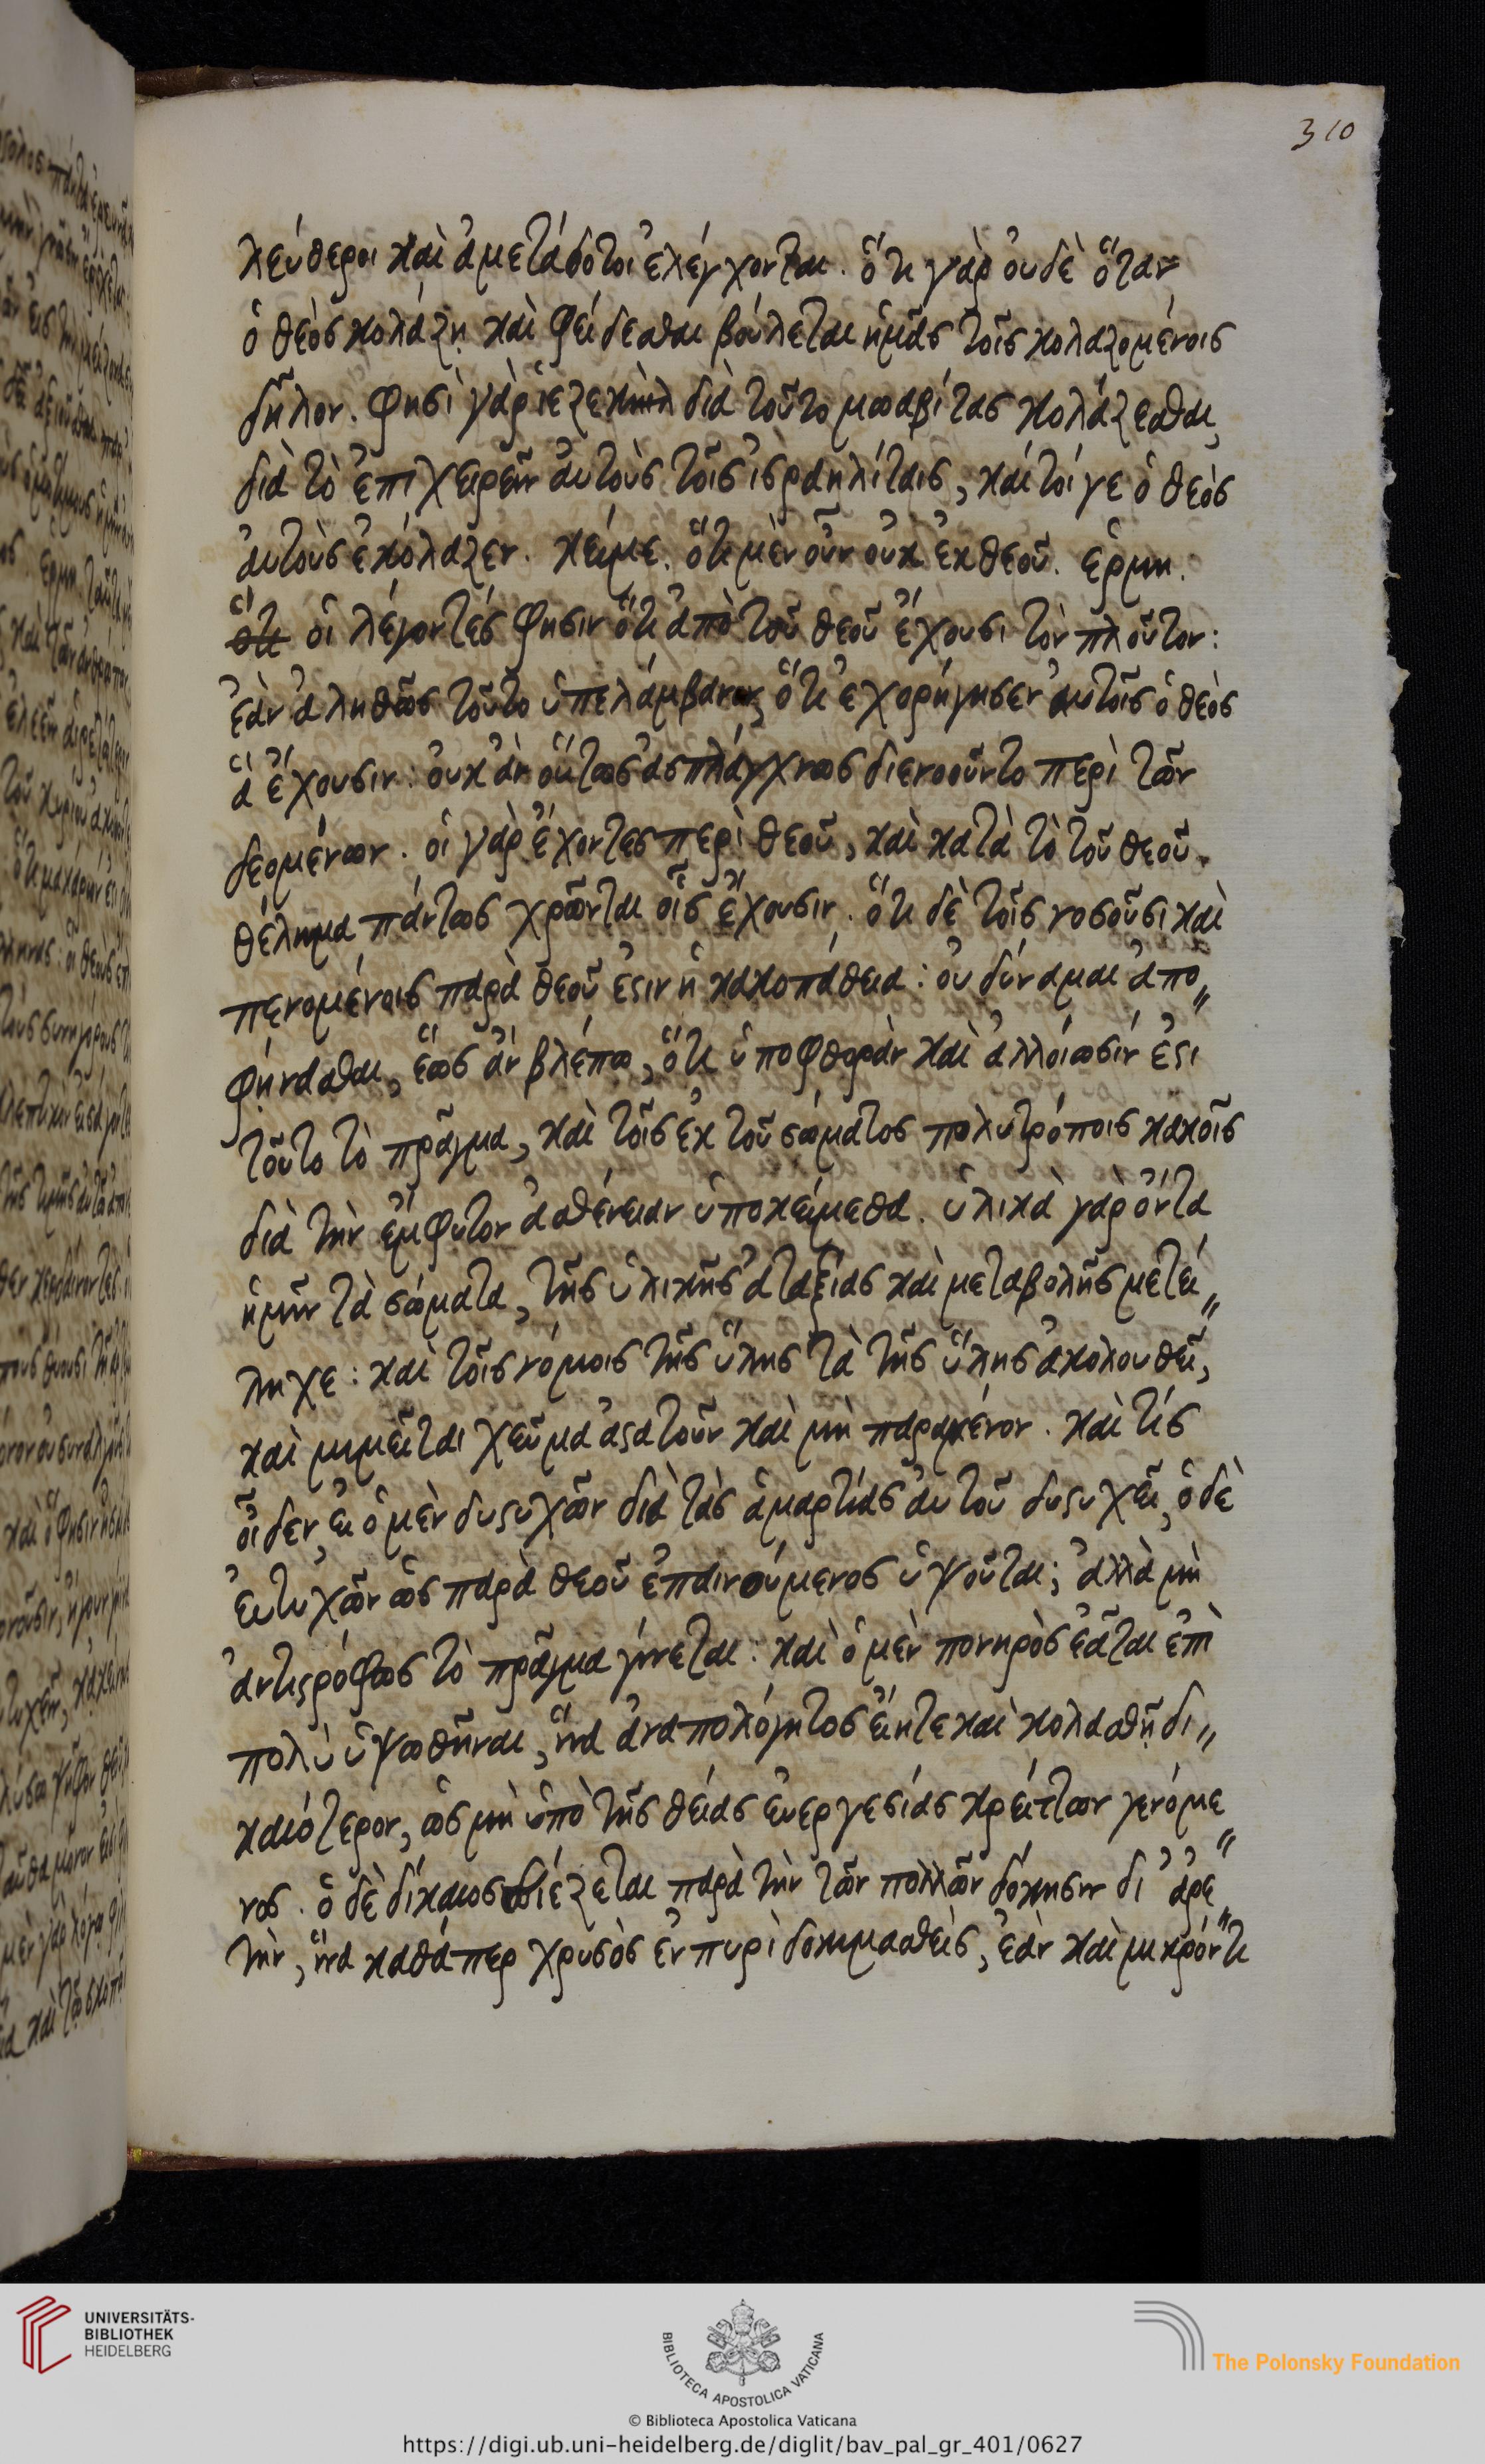 310
λεύθεροι καὶ ἀμετάδοτοι ἐλέγχονται. ὅτι γὰρ οὐδὲ ὅταν
ὁ θεὸς κολάζῃ καὶ φείδεσθαι βούλεται ἡμᾶς τοῖς κολαζομένοις
δῆλον. φησὶ γὰρ ἰεζεκιὴλ διὰ τοῦτο μωαβίτας κολάζεσθαι,
διὰ τὸ ἐπιχειρεῖν αὐτοὺς τοῖς ἰσραηλίταις, καίτοί γε ὁ θεὸς
αὐτοὺς ἐκόλαζεν. κείμε. ὅτι μὲν οὖν οὐκ ἐκ θεοῦ. ἑρμη.
ὅτι οἱ λέγοντές φησιν ὅτι ἀπὸ τοῦ θεοῦ ἔχουσι τὸν πλοῦτον:
ἐὰν ἀληθῶς τοῦτο ὑπελάμβανον, ὅτι ἐχορήγησεν αὐτοῖς ὁ θεὸς
ἃ ἔχουσιν: οὐκ ἂν οὕτως ἀσπλάγχνως διενοοῦντο περὶ τῶν
δεομένων. οἱ γὰρ ἔχοντες περὶ θεοῦ, καὶ κατὰ τὸ τοῦ θεοῦ
θέλημα πάντως χρῶνται οἷς ἔχουσιν. ὅτι δὲ τοῖς νοσοῦσι καὶ
πενομένοις παρὰ θεοῦ ἐστιν ἡ κακοπάθεια: οὐ δύναμαι ἀπο〃
φήνασθαι, ἕως ἂν βλέπω, ὅτι ὑπο φθορὰν καὶ ἀλλοίωσίν ἐστι
τοῦτο τὸ πρᾶγμα, καὶ τοῖς ἐκ τοῦ σώματος πολυτρόποις κακοῖς
διὰ τὴν ἔμφυτον ἀσθένειαν ὑποκείμεθα. ὑλικὰ γὰρ ὄντα
ἡμῖν τὰ σώματα, τῆς ὑλικῆς ἀταξίας καὶ μεταβολῆς μετεί〃
ληχε: καὶ τοῖς νόμοις τῆς ὕλης τὰ τῆς ὕλης ἀκολουθεῖ,
καὶ μιμεῖται χεῦμα ἀστατοῦν καὶ μὴ παραμένον. καὶ τίς
οἶδεν, εἰ ὁ μὲν δυστυχῶν διὰ τὰς ἁμαρτίας αὐτοῦ δυστυχεῖ, ὁ δὲ
εὐτυχῶν ὡς παρὰ θεοῦ ἐπαινούμενος ὑψοῦται; ἀλλὰ μὴ
ἀντιστρόφως τὸ πρᾶγμα γίνεται: καὶ ὁ μὲν πονηρὸς ἐᾶται ἐπὶ
πολὺ ὑψωθῆναι, ἵνα ἀναπολόγητος εἴη τε καὶ κολασθῇ δι〃
καιότερον, ὡς μὴ ὑπὸ τῆς θείας εὐεργεσίας κρείττων γενόμε〃
νος. ὁ δὲ δίκαιος πιέζεται παρὰ τὴν τῶν πολλῶν δόκησιν δι᾽ ἀρε〃
τὴν, ἵνα καθάπερ χρυσὸς ἐν πυρὶ δοκιμασθεὶς, ἐὰν καὶ μικρόν τι
UNIVERSITÄTS-
BIBLIOTHEK
HEIDELBERG
BIBLIOTECA APOSTOLICA VATICANA
The Polonsky Foundation
© Biblioteca Apostolica Vaticana
https://digi.ub.uni-heidelberg.de/diglit/bav_pal_gr_401/0627